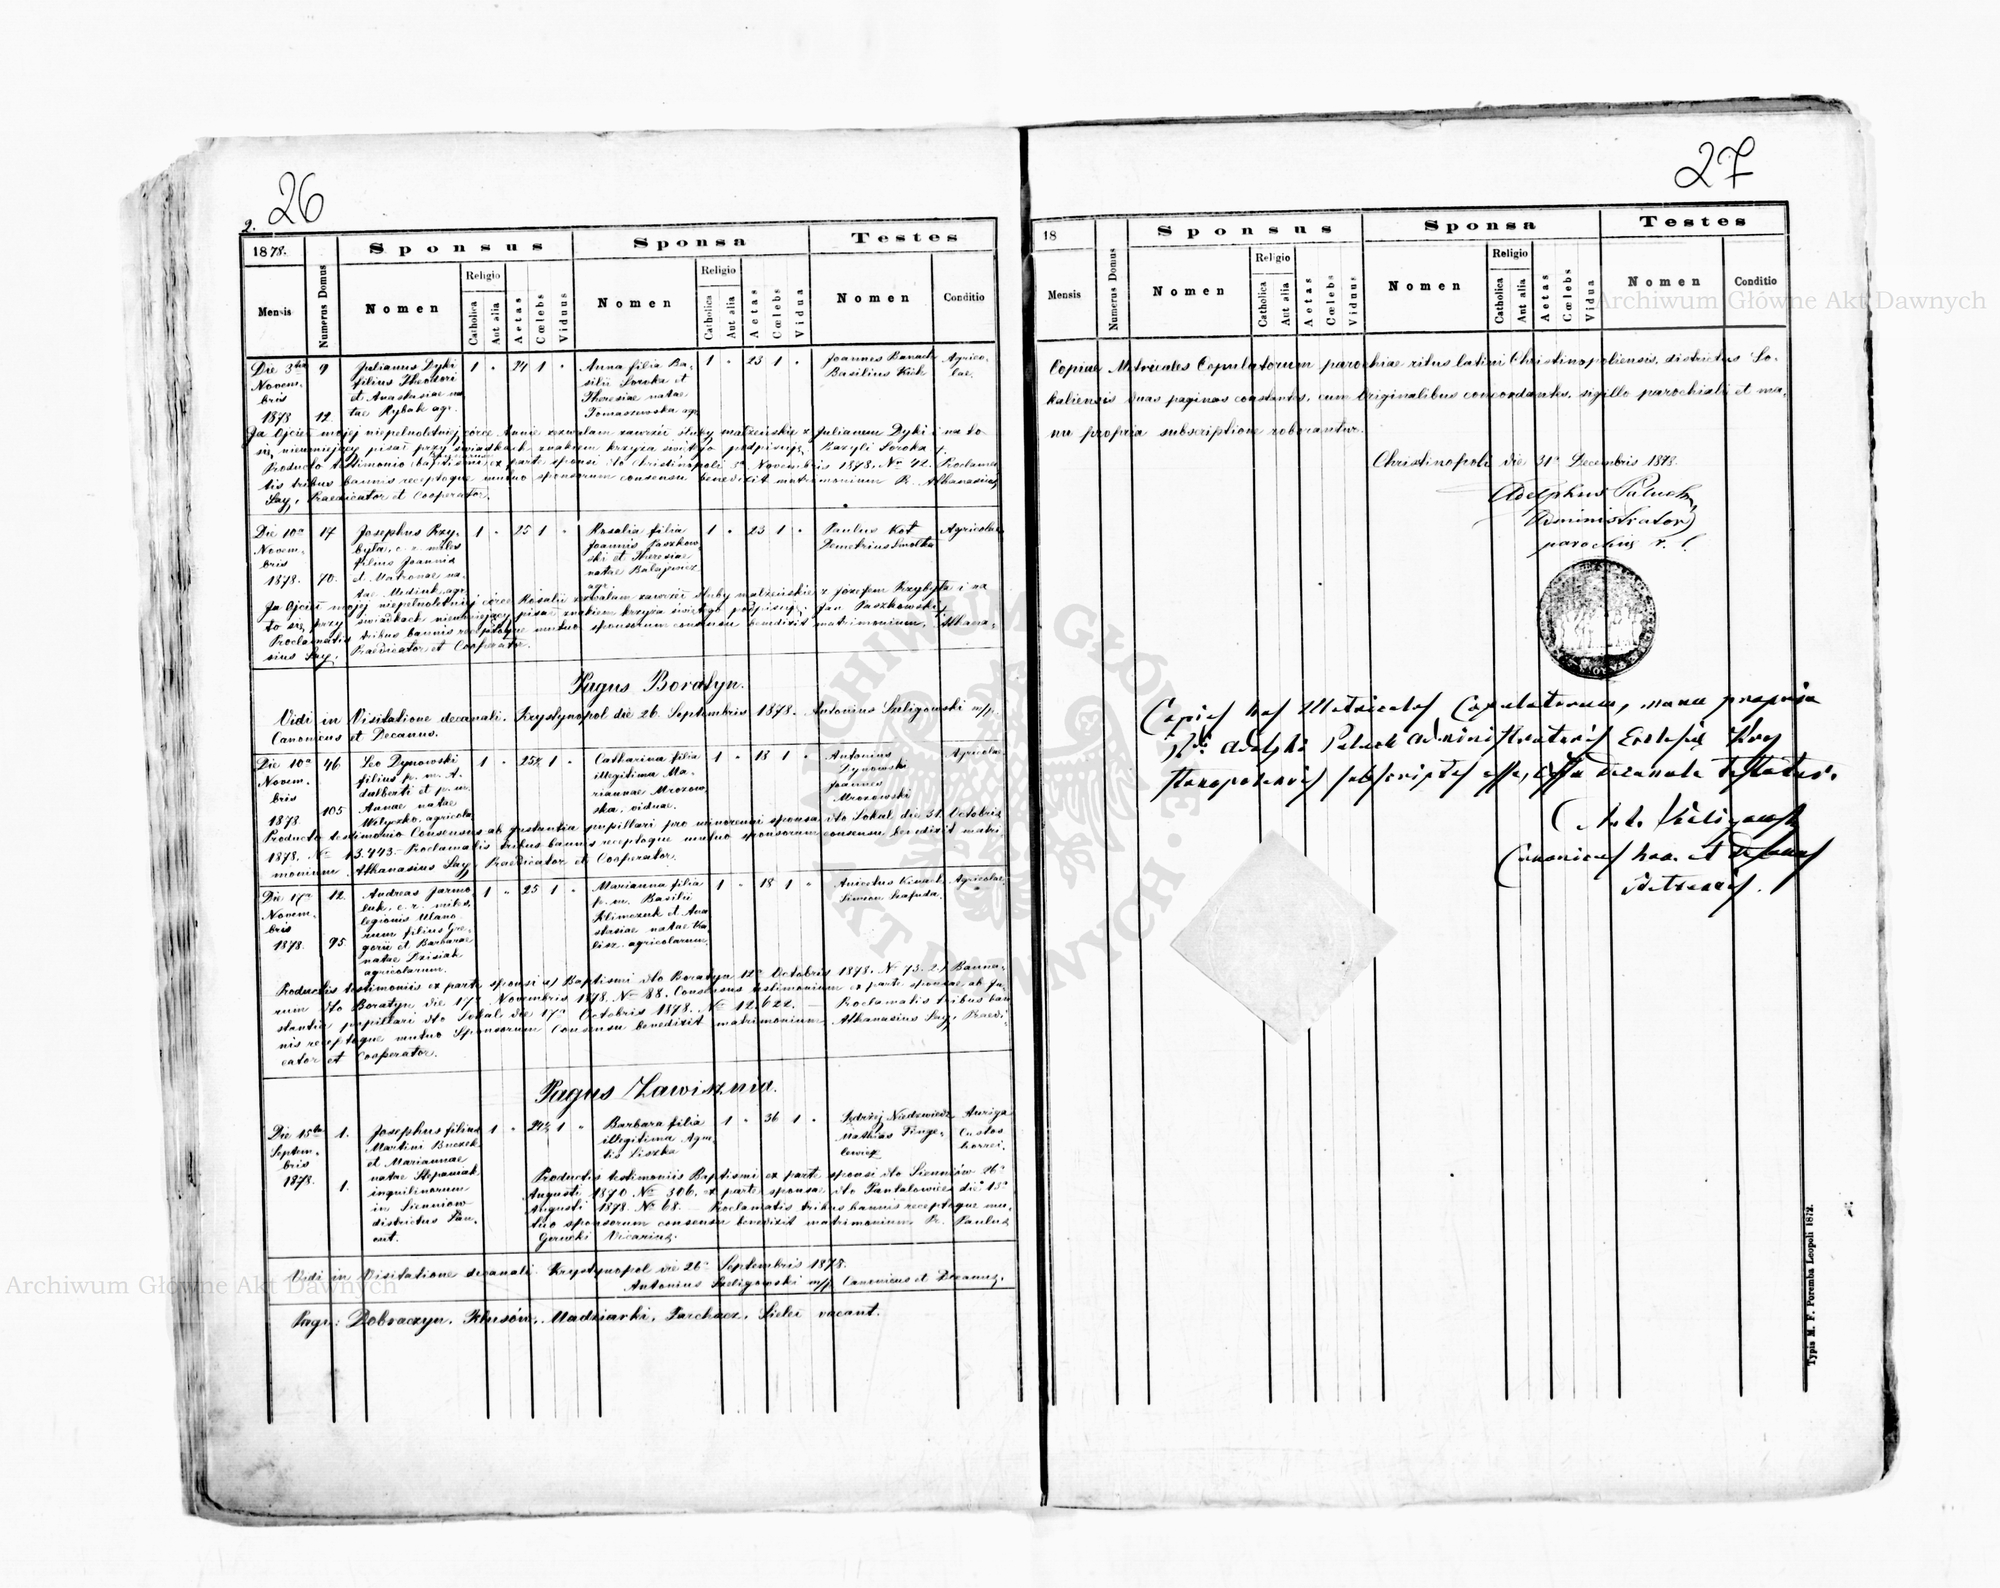 26
2.
1878.
Sponsus
Sponsa
Testes
Mensis
Numerus Domus
Nomen
Religio
Catholica
Aut alia
Aetas
Cœlebs
Viduus
Nomen
Religio
Catholica
Aut alia
Aetas
Cœlebs
Vidua
Nomen
Conditio
Die 3tia
Novem-
bris
1878
9
12.
Julianus Dyki
filius Theodori
et Anastasiae na-
tae Rybak agr.
1 " 24 1 "
Anna filia Ba-
silii Soroka et
Theresiae natae
Tomaszewska agr.
1 " 23 1 "
Joannes Banach
Basilius Kick
Agrico-
lae.
Ja Ojciec mojej niepełnoletniej córce Annie zezwalam zawrzeć śluby małżeńskie z Julianem Dyki i na to
się, nieumiejący pisać przy świadkach znakiem krzyża świętego podpisuję. Bazyli Soroka
Producto testimonio baptismi ex parte sponsi dto Christinopoli 3a Novembris 1878. No 42. Proclama-
tis tribus bannis receptoque mutuo sponsorum consensu benedixit matrimonium P. Athanasius
Say, Praedicator et Cooperator.
Die 10a
Novem-
bris
1878.
17
70.
Josephus Przy-
byla, c. r. miles
filius Joannis
et Matronae na-
tae Musiuk, agr.
1 " 25 1 "
Rosalia filia
Joannis Paszkow-
ski et Theresiae
natae Balajewicz
agr.
1 " 23 1 "
Paulus Kot
Demetrius Smolka
Agricolae
Ja Ojciec mojej niepełnoletniej córce Rosalii zezwalam zawrzeć śluby małżeńskie z Józefem Przybyła i na
to się, przy świadkach nieumiejący pisać znakiem krzyża świętego podpisuję. Jan Paszkowski
Proclamatis tribus bannis receptoque mutuo sponsorum consensu benedixit matrimonium. Athana-
sius Say, Praedicator et Cooperator.
Pagus Boratyn.
Vidi in Visitatione decanali. Krystynopol die 26. Septembris 1878. Antonius Szeligowski m/p.
Canonicus et Decanus.
Die 10a
Novem-
bris
1878
46
105
Leo Dynowski
filius p. m. A-
dalberti et p. m.
Annae natae
Melyczko, agricola
1 " 25½ 1 "
Catharina filia
illegitima Ma-
riannae Mrozow-
ska, viduae.
1 " 18 1 "
Antonius
Dynowski
Joannes
Mrozowski
Agricolae
Producto testimonio Consensus ab Instantia pupillari pro minorenni sponsa dto Sokal die 31. Octobris
1878. No 13.443. Proclamatis tribus bannis receptoque mutuo sponsorum consensu benedixit matri-
monium Athanasius Say, Praedicator et Cooperator.
Die 17a
Novem-
bris
1878.
12.
95.
Andreas Jarmo-
luk, c. r. miles
legionis Ulano-
rum filius Gre-
gorii et Barbarae
natae Dzisiak
agricolarum.
1 " 25 1 "
Marianna filia
p. m. Basilii
Klimczuk et Ana-
stasiae natae Ka-
lisz agricolarum.
1 " 18 1 "
Anicetus
Simeon
Agricolae
Productis testimoniis ex parte sponsi a) Baptismi dto Boratyn 12a Octobris 1878. No 73. 2) Banno-
rum dto Boratyn die 17a Novembris 1878. No 88. Consensus testimonium ex parte sponsae ab In-
stantia pupillari dto Sokal die 17a Octobris 1878. No 12.622. Proclamatis tribus ban-
nis receptoque mutuo Sponsorum Consensu benedixit matrimonium Athanasius Say, Praedi-
cator et Cooperator.
Pagus Zawisznia.
Die 15ta
Septem-
bris
1878.
1.
1.
Josephus filius
Martini Buczek
et Mariannae
natae Stepaniak
inquilinorum
in Sienniow
districtus Łan-
cut.
1 " 24½ 1 "
Barbara filia
illegitima Agne-
tis Liszka
1 " 36 1 "
Jędrzej Niedzwiedz
Mathias
Auriga
Custos
horrei.
Productis testimoniis Baptismi ex parte sponsi dto Sienniów 26a
Augusti 1870 No 306. ex parte sponsae dto Pantalowice die 13a
Augusti 1878. No 68. Proclamatis tribus bannis receptoque mu-
tuo sponsorum consensu benedixit matrimonium Pr. Paulus
Vicarius.
Vidi in Visitatione decanali Krystynopol die 26a Septembris 1878.
Antonius Szeligowski m/p. Canonicus et Decanus.
Pagi: Dobraczyn, Klusów, Madziarki, Parchacz, Sielec vacant.
27
18
Sponsus
Sponsa
Testes
Mensis
Numerus Domus
Nomen
Religio
Catholica
Aut alia
Aetas
Cœlebs
Viduus
Nomen
Religio
Catholica
Aut alia
Aetas
Cœlebs
Vidua
Nomen
Conditio
Copiae Metricales Copulatorum parochiae ritus latini Christinopoliensis, districtus So-
kaliensis duas paginas constantes, cum Originalibus concordantes, sigillo parochiali et ma-
nu propria subscriptione roborantur.
Christinopoli die 31a Decembris 1878.
Adolphus Paluch
Administrator
parochiae r. l.
Copias has Metricales Copulatorum, manu propria
Rdi Adolphi Paluch Administratoris Ecclesiae Kry
stynopolensis subscriptas esse, Officium Decanale testatur.
Ant. Szeligowski
Canonicus hon. et Decanus
Typis M. F. Poremba Leopoli 1872.
Archiwum Główne Akt Dawnych
Archiwum Główne Akt Dawnych
ARCHIWUM GŁÓWNE AKT DAWNYCH